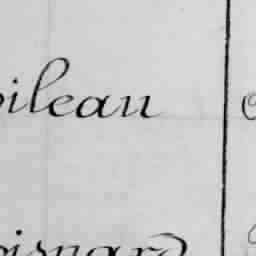 oileau
oisnard